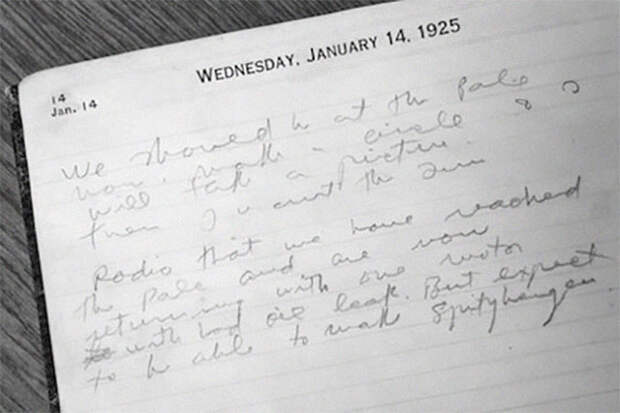 WEDNESDAY, JANUARY 14, 1925
14
Jan. 14
We should be at the Pole
now. make a circle
will take a picture.
Then I want the sun
Radio that we have reached
the Pole and are now
returning with one motor
with bad oil leak. But expect
to be able to make Spitzbergen.